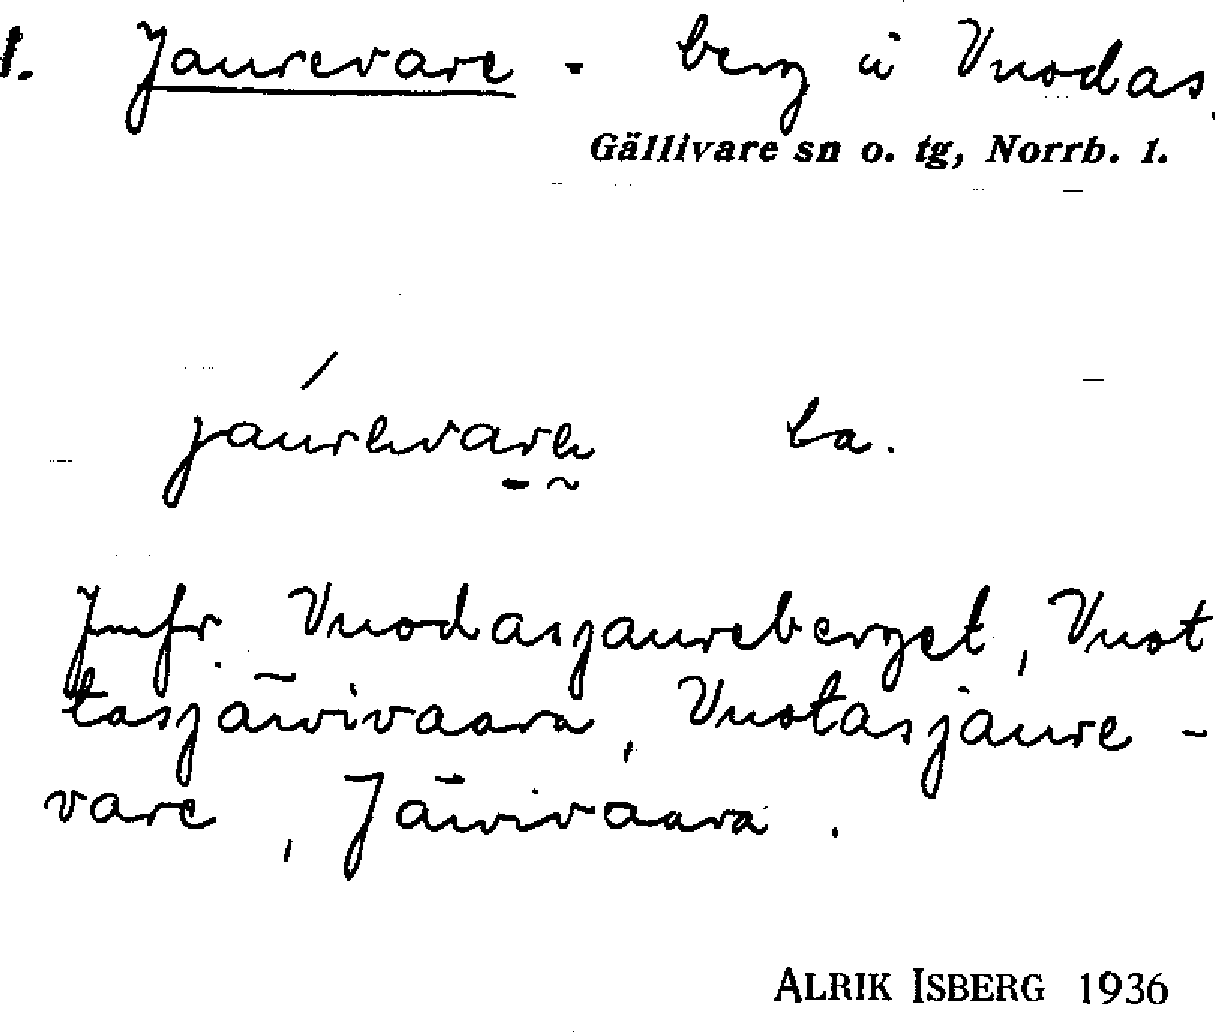 1. Jaurevare - berg i Vuodas.
Gällivare sn o. tg, Norrb. l.
la.
Jmfr. Vuodasjaureberget, Vuot
tasjärvivaara, Vuotasjaure-
vare, Järvivaara.
ALRIK ISBERG 1936